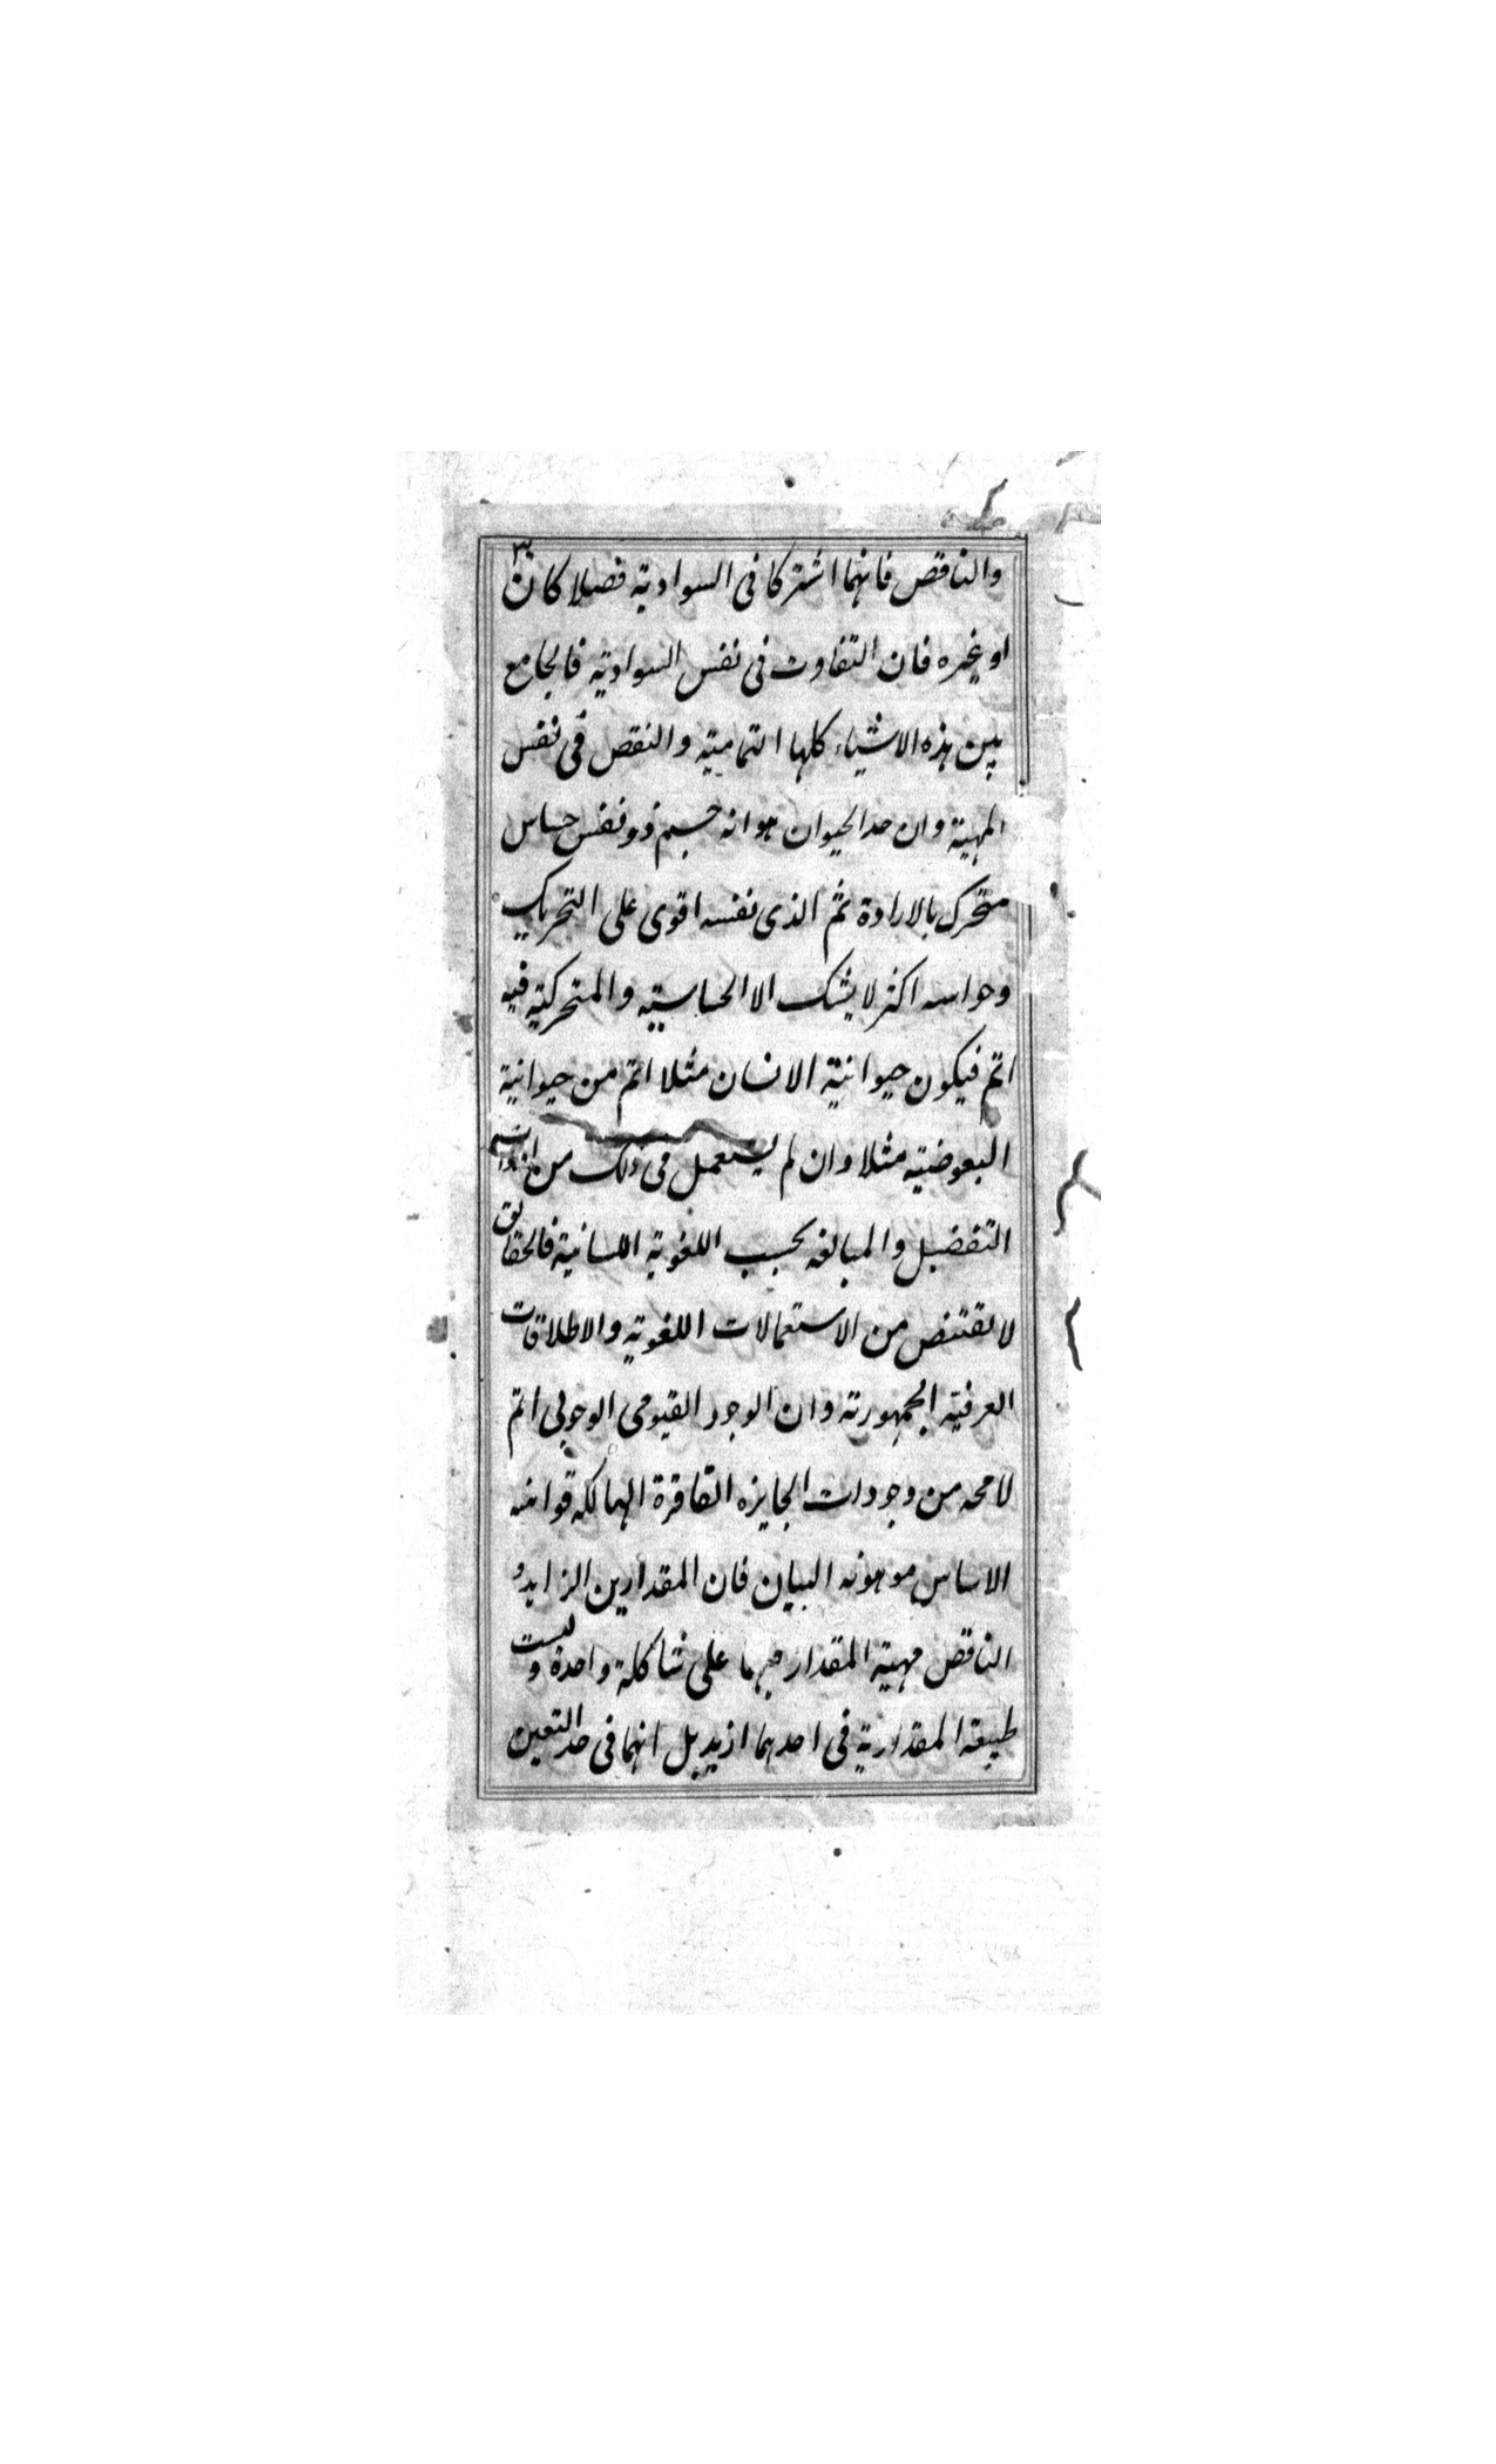 والناقص فانهما اشتركا فى السوادية فصلا كان
او غيره فان التفاوت فى نفس السوادية فالجامع
بين هذه الاشياء كلها التمامية والنقص فى نفس
المهية وان حد الحيوان هو انه جسم ذو نفس حساس
متحرك بالارادة ثم الذى نفسه اقوى على التحريك
وحواسه اكثر لا يشك الا الحساسية والمتحركية فيه
اتم فيكون حيوانية الانسان مثلا اتم من حيوانية
البعوضية مثلا وان لم يستعمل فى ذلك من
التفضيل والمبالغه بحسب اللغوية اللسانية فالحقايق
لا تقتنص من الاستعمالات اللغوية والاطلاقات
العرفية الجمهورية وان الوجود القيومى الوجوبى اتم
لا محه من وجودات الجايزه الفاقرة الهالكه قوانه
الاساس موهونه البيان فان المقدارين الزايد و
الناقص مهية المقدار فيهما على شاكلة واحدة وليست
طبيعة المقدارية فى احدهما ازيد بل انهما فى حد التعين